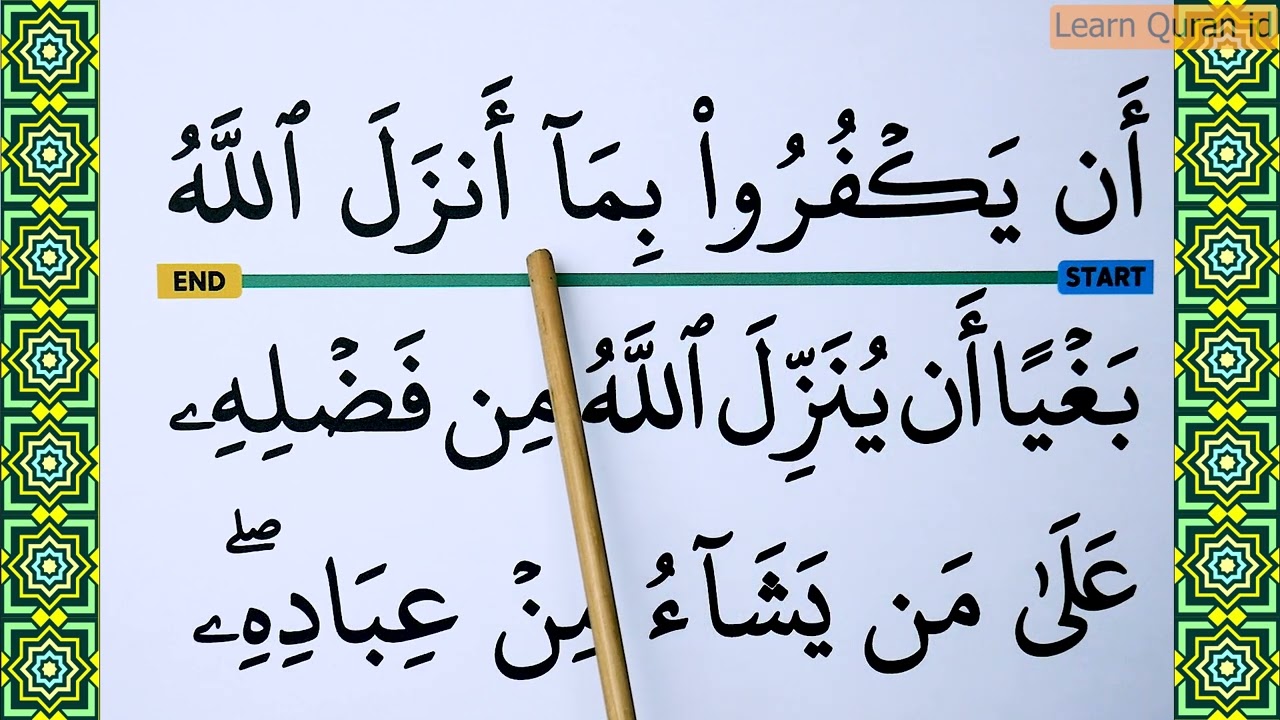 Learn Quran id
أَن يَكۡفُرُواْ بِمَآ أَنزَلَ ٱللَّهُ
START
END
بَغۡيًا أَن يُنَزِّلَ ٱللَّهُ مِن فَضۡلِهِۦ
عَلَىٰ مَن يَشَآءُ مِنۡ عِبَادِهِۦۖ